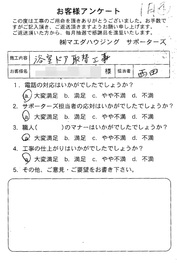 お客様アンケート
この度は工事のご用命を頂きましてありがとうございました。お手数ですが
ご返送頂きますようお願い申し上げます。
ご返送頂いた方から、毎月抽選で感謝品を進呈いたします。
㈱マエダハウジング サポーターズ
施工内容 浴室ドア取替工事
お客様名 様 担当者 西田
1. 電話の対応はいかがでしたでしょうか?
a 大変満足 b 満足 c やや不満 d 不満
2. サポーターズ担当者の応対はいかがでしたでしょうか?
a 大変満足 b 満足 c やや不満 d 不満
3. 職人( )のマナーはいかがでしたでしょうか?
a 大変満足 b 満足 c やや不満 d 不満
4. 工事の仕上がりはいかがでしたでしょうか?
a 大変満足 b 満足 c やや不満 d 不満
5. その他、ご意見・ご要望をお書き下さい。